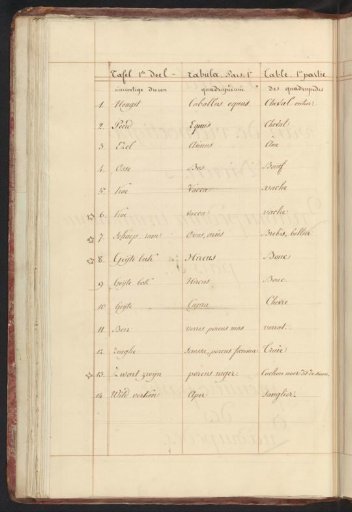 Tafel 1ste deel Tabula Pars 1a Table 1re partie
viervoetige dieren quadrupedum des quadrupedes
1. Hengst Caballus equus Cheval entier
2. Peerd Equus Cheval
3. Ezel Asinus Ane
4. Osse Bos Bœuf
5. koe Vacca vache
6. koe vacca vache
7. Schaep, ram Ovis, aries Brebis, bellier
8. Geyte bok Hircus Bouc
9. Geyte bok Hircus Bouc
10. Geyte Capra Chevre
11. Beir verres, porcus mas verrat
12. Zeughe porcus femina Truie
13. Zwart zwyn porcus niger Cochon noir de
14. Wild verken Aper Sanglier